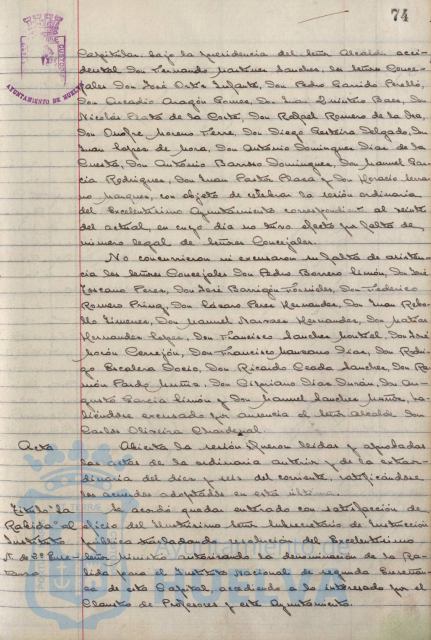 74
AYUNTAMIENTO DE HUELVA
Capitular, bajo la presidencia del Señor Alcalde acci-
dental Don Fernando Martínez Sanchez, los Señores Conce-
jales Don José Ortiz Infante, Don Pedro Garrido Perelló,
Don Arcadio Aragón Gomez, Don Juan Quintero Baez, Don
Nicolás de la Corte, Don Rafael Romero de la
Don Onofre Moreno Don Diego Delgado, Don
Juan Lopez de Mora, Don Antonio Dominguez Diaz de la
Cuesta, Don Antonio Barroso Dominguez, Don Manuel Gar-
cia Rodriguez, Don Juan Pastor Plaza y Don Horacio
Marquez, con objeto de celebrar la sesión ordinaria
del Excelentísimo Ayuntamiento al veinte
del actual, en cuyo día no tuvo efecto por falta de
número legal de Señores Concejales.
No concurrieron ni excusaron su falta de asisten-
cia los Señores Concejales Don Pedro Borrero Limón, Don José
Toscano Perez, Don José Barrigón Don Federico
Romero Don Perez Hernandez, Don Juan Rebo-
llo Jimenez, Don Manuel Narvaez Hernandez, Don Matías
Hernandez Lopez, Don Francisco Sanchez Don José
Morón Cerejón, Don Francisco Manzano Diaz, Don Rodri-
go Escalera Don Ricardo Sanchez, Don Ra-
món Pardo Don Cipriano Diaz Durán, Don Au-
gusto Garcia Limón y Don Manuel Sanchez Muñoz, ha-
biéndose excusado por ausencia el Señor Alcalde Don
Carlos Oliveira Chardenal
Acta Abierta la sesión fueron leidas y aprobadas
las actas de la ordinaria anterior y de la extraor-
dinaria del diez y seis del corriente, ratificándose
los acuerdos adoptados en esta última.
Título "La Se acordó quedar enterado con satisfacción de
Rabida" al oficio del Ilustrísimo Señor Subsecretario de Instrucción
Instituto pública trasladando resolución del Excelentísimo
N. de 2ª Ense- Señor Ministro autorizando la denominación de La Ra-
ñanza bida para el Instituto Nacional de segunda Enseñan-
za de esta Capital, accediendo a lo interesado por el
Claustro de Profesores y este Ayuntamiento.